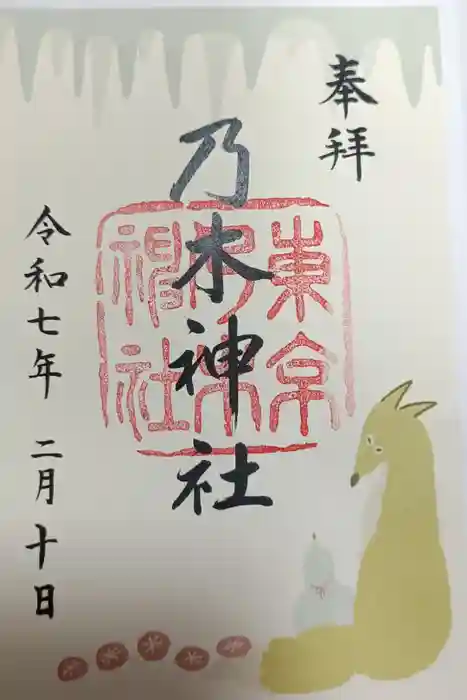 奉拝
乃木神社
東京乃木神社
令和七年 二月十日